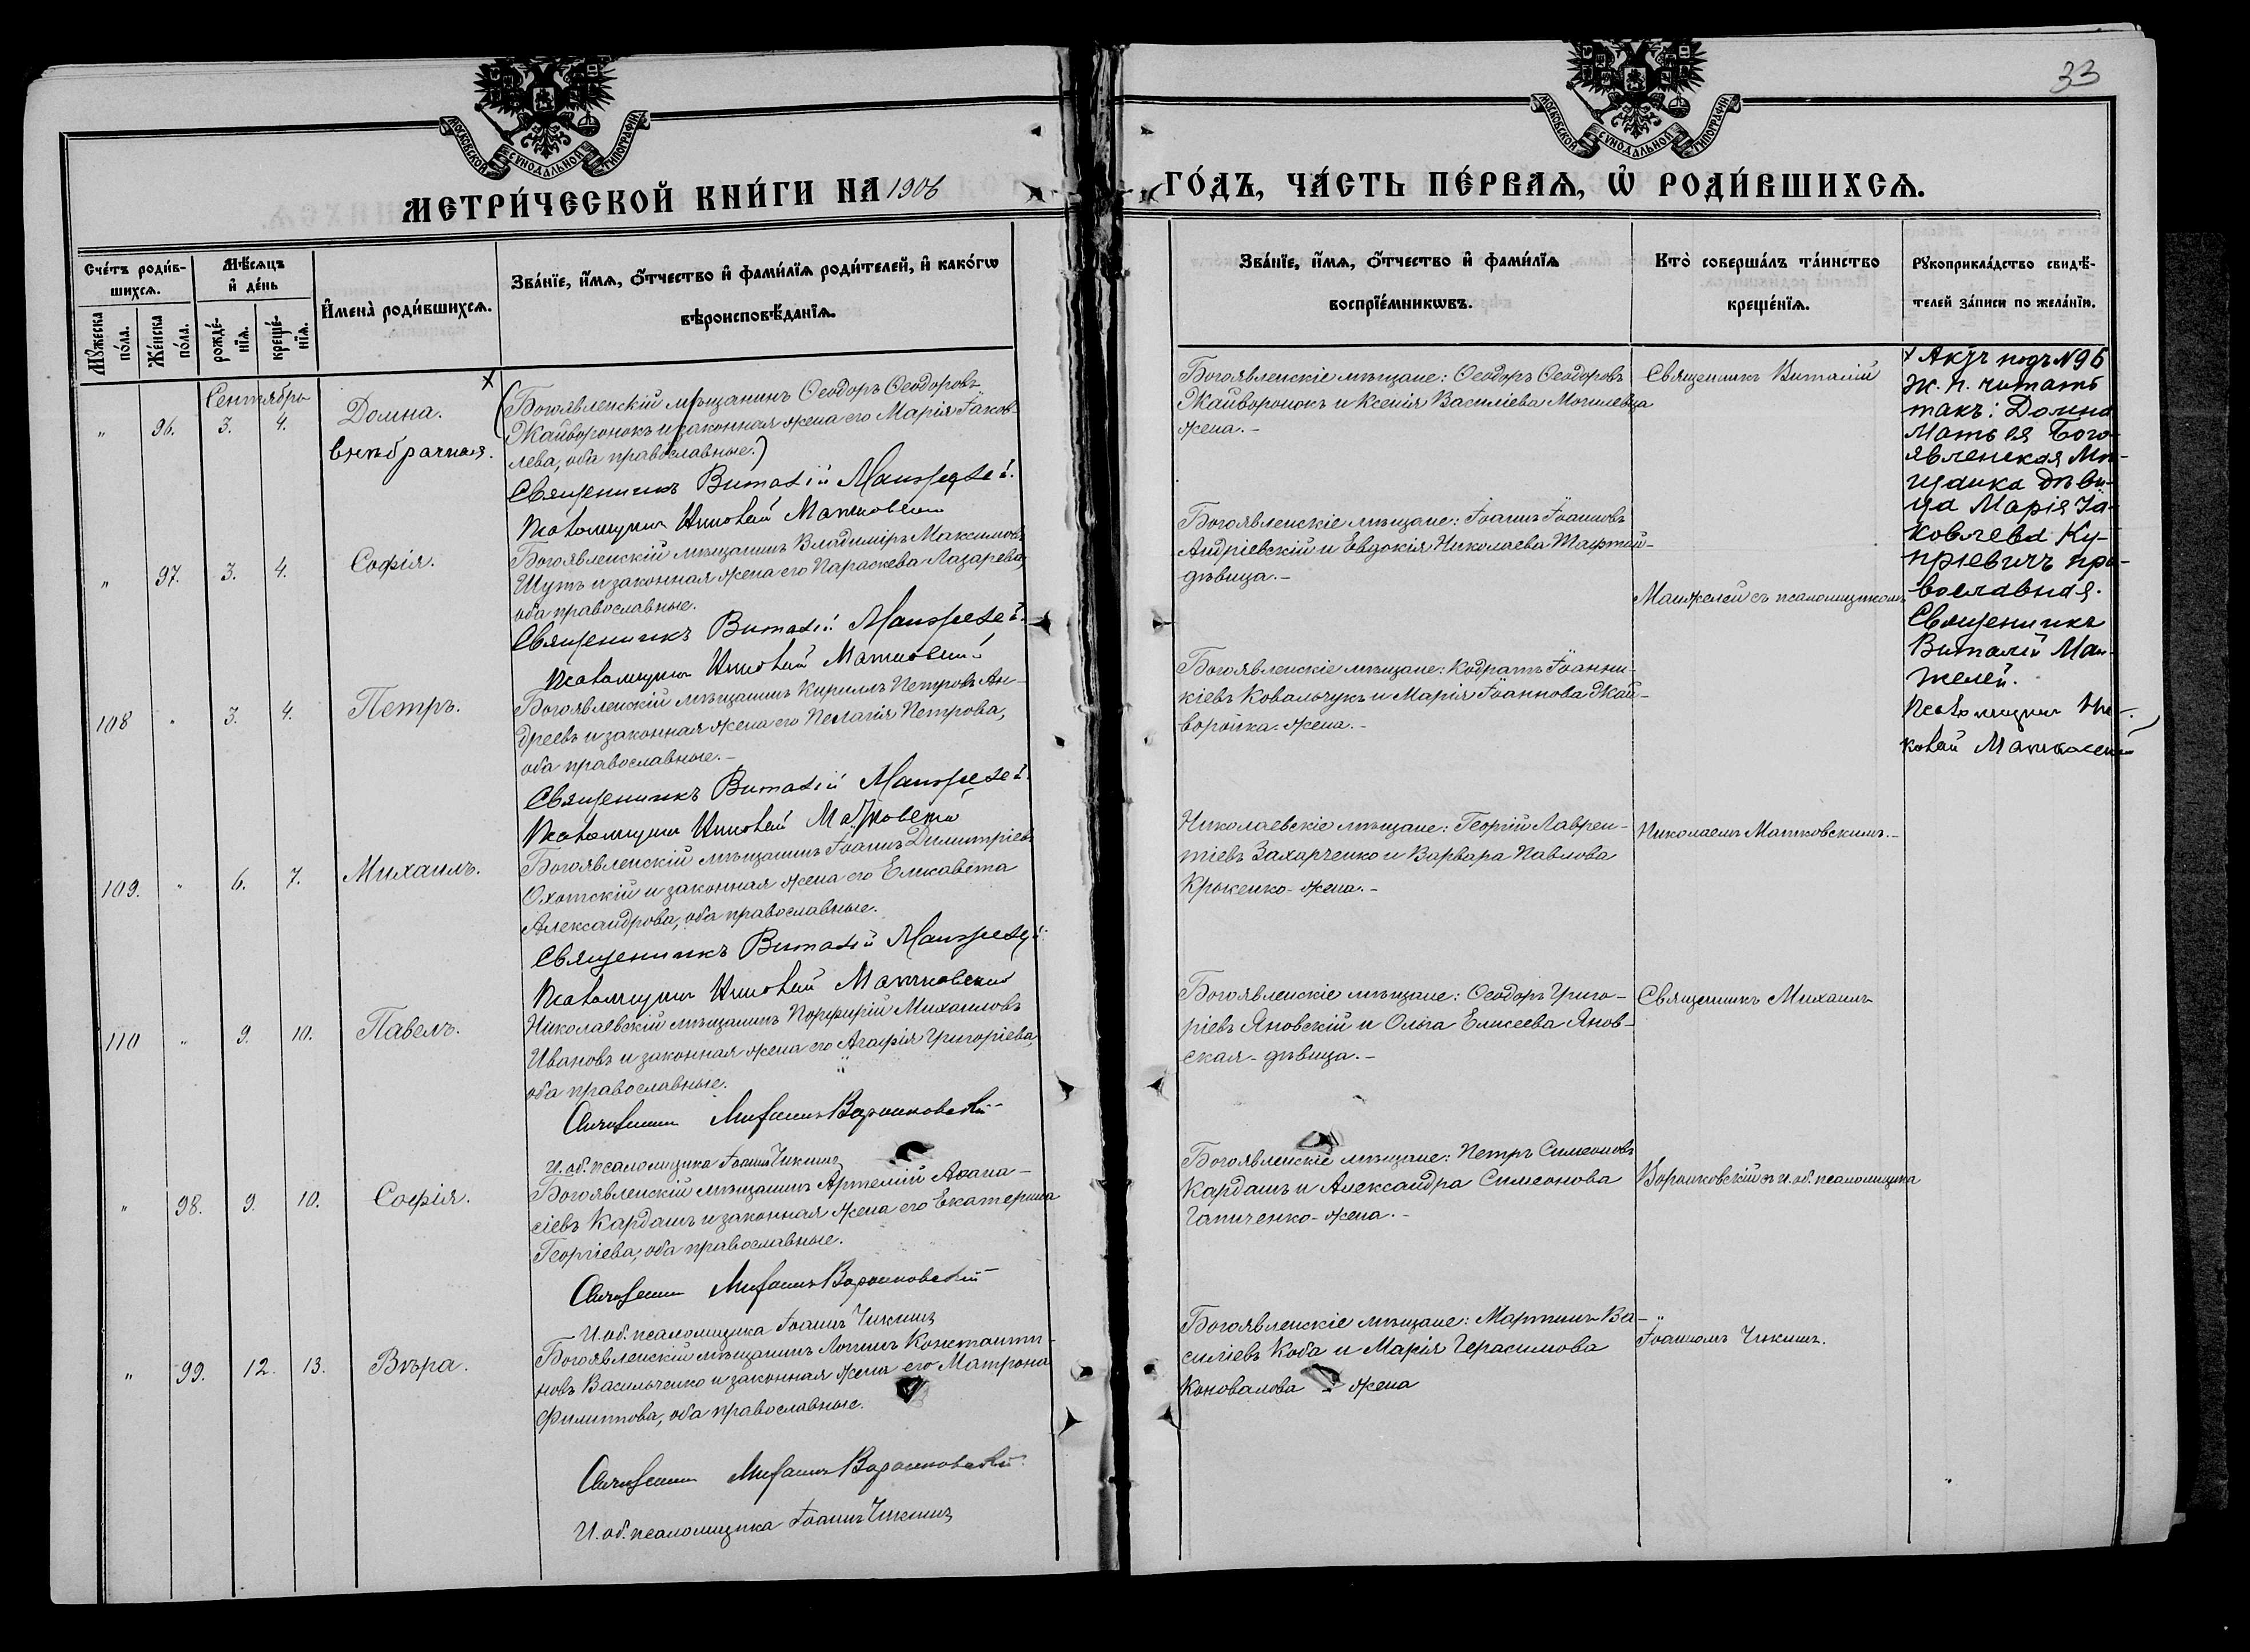 33
МОСКОВСКОЙ СѴНОДАЛЬНОЙ ТИПОГРАФІИ
МОСКОВСКОЙ СѴНОДАЛЬНОЙ ТИПОГРАФІИ
МЕТРИ́ЧЕСКОЙ КНИ́ГИ НА 1906
ГО́ДЪ, ЧА́СТЬ ПЕ́РВАѦ, Ѡ РОДИ́ВШИХСѦ.
Сче́тъ роди́в-
шихсѧ.
Мꙋ́жеска по́ла.
Же́нска по́ла.
Мѣ́сѧцъ и де́нь
рожде́-нїѧ.
креще́-нїѧ.
Имена̀ роди́вшихсѧ.
Зва́нїе, и́мѧ, о́тчество и фами́лїѧ роди́телей, и како́гѡ
вѣроисповѣ́данїѧ.
Зва́нїе, и́мѧ, о́тчество и фами́лїѧ
воспрїе́мникѡвъ.
Кто̀ соверша́лъ та́инство
креще́нїѧ.
Рꙋкоприкла́дство свидѣ́-
телей за́писи по жела́нїю.
Сентябрь
" 96. 3. 4. Домна.
внѣбрачная.
х
(Богоявленскій мѣщанинъ Ѳеодоръ Ѳеодоровъ
Жайворонокъ и законная жена его Марія Іаков-
лева, оба православные.)
Священникъ Виталій Манжелей.
Псаломщикъ Николай Матковскій
Богоявленскіе мѣщане: Ѳеодоръ Ѳеодоровъ
Жайворонокъ и Ксенія Василіева Могилевца
жена.-
Священникъ Виталій
х Актъ подъ №96
Ж. п. читать
такъ: Домна
Мать ея Бого-
явленская Мѣ-
щанка дѣви-
ца Марія Іа-
ковлева Ку-
пріевичъ пра-
вославная.
Священникъ
Виталій Ман-
желей.
Псаломщикъ Ни-
колай Матковскій
" 97. 3. 4. Софія.
Богоявленскій мѣщанинъ Владиміръ Максимовъ
Шутъ и законная жена его Параскева Лазарева,
оба православные.
Священникъ Виталій Манжелей.
Псаломщикъ Николай Матковскій
Богоявленскіе мѣщане: Іоаннъ Іоанновъ
Андріевскій и Евдокія Николаева
дѣвица.-
Манжелей съ псаломщикомъ
108 " 3. 4. Петръ.
Богоявленскій мѣщанинъ Кириллъ Петровъ Ан-
дреевъ и законная жена его Пелагія Петрова,
оба православные.-
Священникъ Виталій Манжелей.
Псаломщикъ Николай Матковскій
Богоявленскіе мѣщане: Кодратъ Іоанни-
кіевъ Ковальчукъ и Марія Іоаннова Жай-
воронка-жена.-
109. " 6. 7. Михаилъ.
Богоявленскій мѣщанинъ Іоаннъ Димитріевъ
Охотскій и законная жена его Елисавета
Александрова, оба православные.
Священникъ Виталій Манжелей.
Псаломщикъ Николай Матковскій
Николаевскіе мѣщане: Георгій Лаврен-
тіевъ Захарченко и Варвара Павлова
жена.-
Николаемъ Матковскимъ.-
110 " 9. 10. Павелъ.
Николаевскій мѣщанинъ Порфирій Михаиловъ
Ивановъ и законная жена его Агафія Григоріева,
оба православные.
Священникъ Михаилъ Ворошковскій
И. об. псаломщика Іоаннъ Чикинъ
Богоявленскіе мѣщане: Ѳеодоръ Григо-
ріевъ Яновскій и Ольга Елисеева Янов-
ская-дѣвица.-
Священникъ Михаилъ
" 98. 9. 10. Софія.
Богоявленскій мѣщанинъ Артемій Аѳана-
сіевъ Кардашъ и законная жена его Екатерина
Георгіева, оба православные.
Священникъ Михаилъ Ворошковскій
И. об. псаломщика Іоаннъ Чикинъ
Богоявленскіе мѣщане: Петръ Симеоновъ
Кардашъ и Александра Симеонова
Гапиченко-жена.-
Ворошковскій съ и. об. псаломщика
" 99. 12. 13. Вѣра.
Богоявленскій мѣщанинъ Логинъ Константи-
новъ Васильченко и законная жена его Матрона
Филиппова, оба православные.
Священникъ Михаилъ Ворошковскій
И. об. псаломщика Іоаннъ Чикинъ
Богоявленскіе мѣщане: Мартинъ Ва-
силіевъ Коба и Марія Герасимова
Коновалова - жена
Іоанномъ Чикинъ.